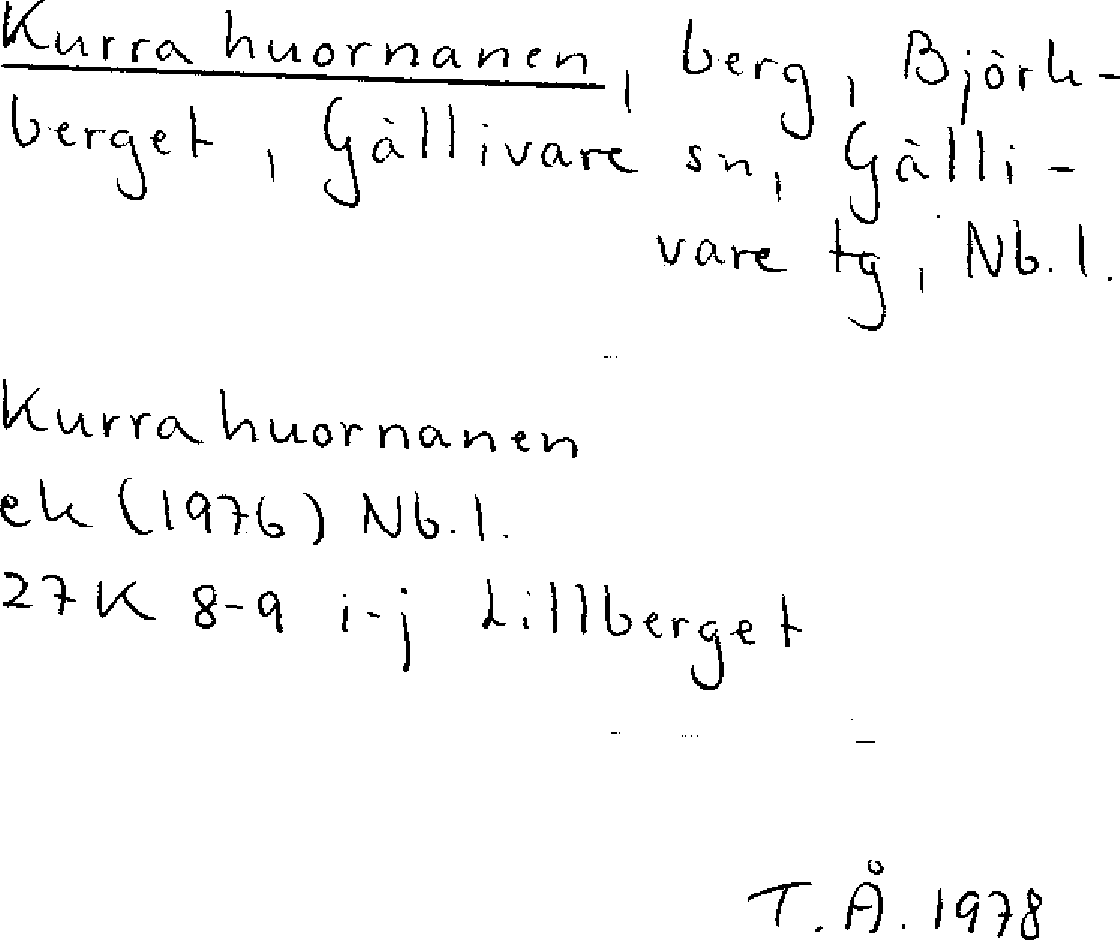 Kurrahuornanen, berg, Björk-
berget, Gällivare sn, Gälli-
vare tg, Nb.l.
Kurrahuornanen
ek (1976) Nb.l.
27K 8-9 i-j Lillberget
T.Å. 1978